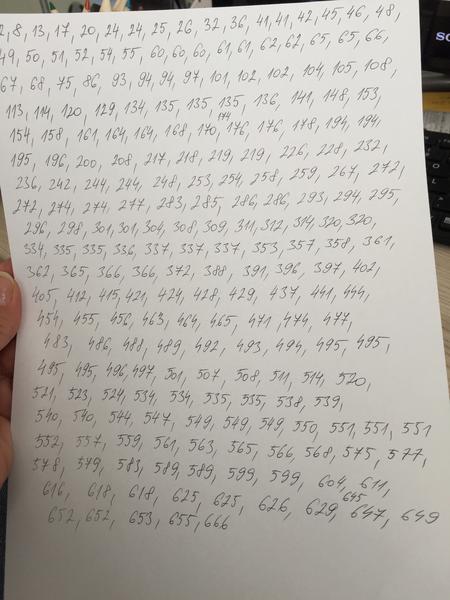 2, 8, 13, 17, 20, 24, 24, 25, 26, 32, 36, 41, 41, 42, 45, 46, 48,
49, 50, 51, 52, 54, 55, 60, 60, 60, 61, 61, 62, 62, 65, 65, 66,
67, 68, 75, 86, 93, 94, 94, 97, 101, 102, 102, 104, 105, 108,
113, 114, 120, 129, 134, 135, 135, 135, 136, 141, 148, 153,
174
154, 158, 161, 164, 164, 168, 170, 176, 176, 178, 194, 194,
195, 196, 200, 208, 217, 218, 219, 219, 226, 228, 232,
236, 242, 244, 244, 248, 253, 254, 258, 259, 267, 272,
272, 274, 274, 277, 283, 285, 286, 286, 293, 294, 295,
296, 298, 301, 301, 304, 308, 309, 311, 312, 314, 320, 320,
334, 335, 335, 336, 337, 337, 337, 353, 357, 358, 361,
362, 365, 366, 366, 372, 388, 391, 396, 397, 402,
405, 412, 415, 421, 424, 428, 429, 437, 441, 444,
454, 455, 456, 463, 464, 465, 471, 474, 477,
483, 486, 488, 489, 492, 493, 494, 495, 495,
495, 495, 496, 497, 501, 507, 508, 511, 514, 520,
521, 523, 524, 534, 534, 535, 535, 538, 539,
540, 540, 544, 547, 549, 549, 549, 550, 551, 551, 551
552, 557, 559, 561, 563, 565, 566, 568, 575, 577,
578, 579, 583, 589, 589, 599, 599, 604, 611,
616, 618, 618, 625, 625, 626, 629, 647, 649
645
652, 652, 653, 655, 666